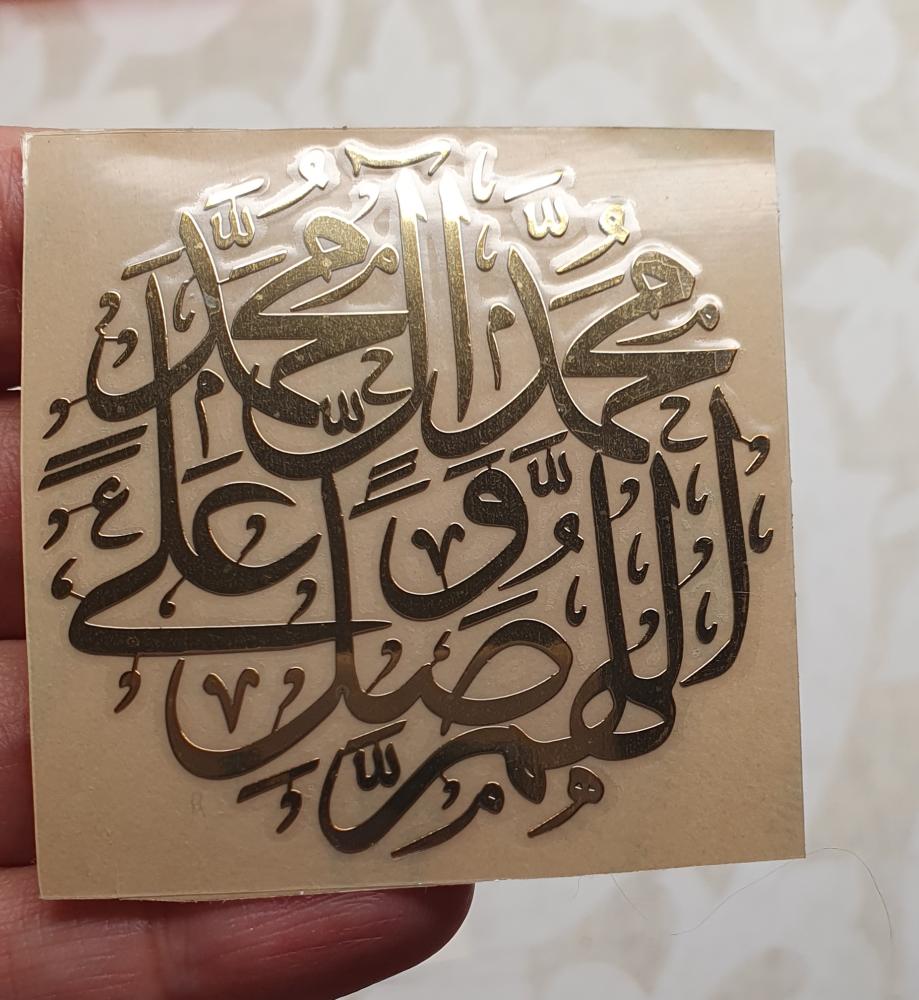 اَللّٰهُمَّ صَلِّ عَلٰی مُحَمَّدٍ وَّآلِ مُحَمَّدٍ